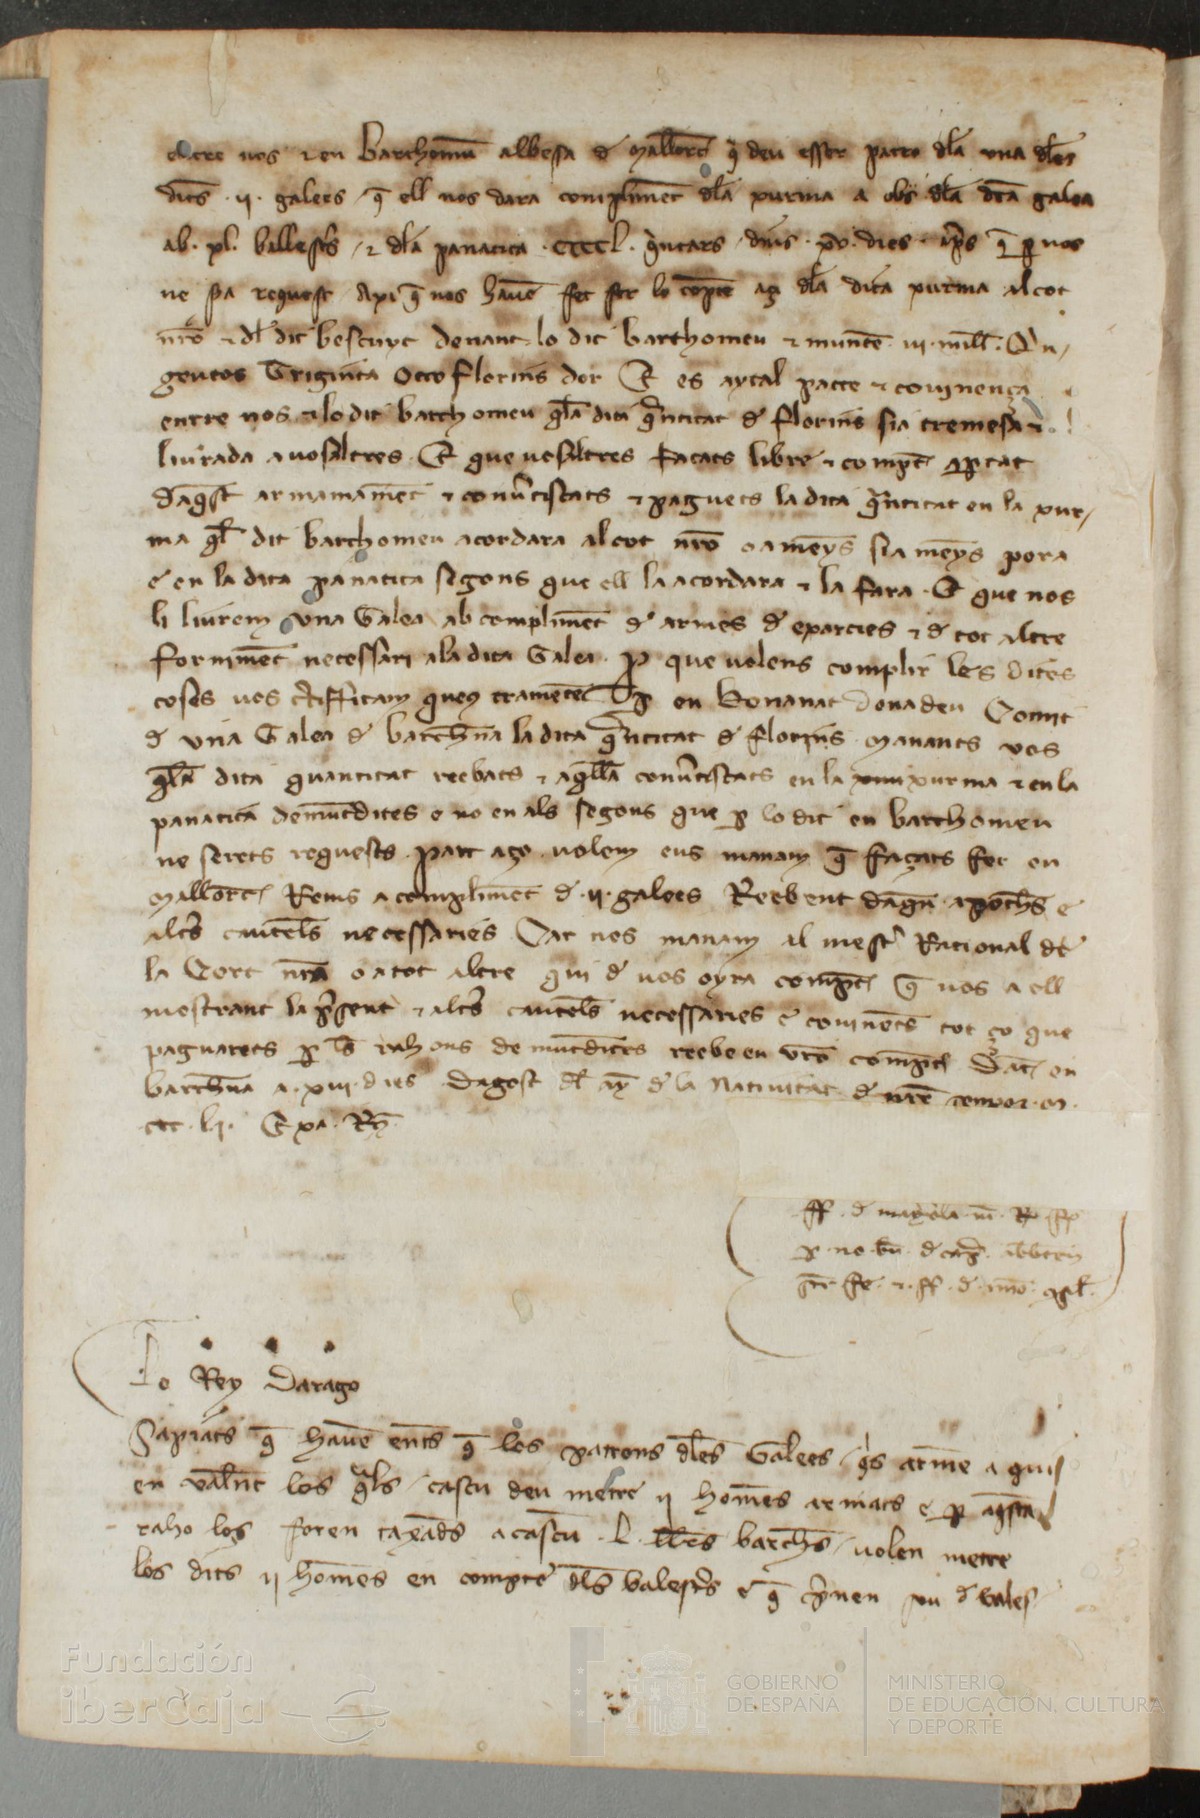 entre nos ⁊ en Barthomeu albesa de Mallorc̄ q̄ deu esser patro dla una dles
dits .ij. galees / q̄ ell nos dara compliment dla xurma a obs dla dta galea
ab .xl. ballesters / ⁊ dla panatica .CCCCl. quintars / dins .xv. dies aps q̄ ꝑ nos
ne sia request / Axi q̄ nos havē fet fer lo compte aq̄ dla dita xurma al cot
nrē ⁊ dl dit bestuyt denant lo dit barthomeu ⁊ munten .iij. mill. Qn /
gentes Triginta Otto Florins dor Et es aytal patte ⁊ covinença
entre nos ⁊ lo dit barthomeu qla dita quātitat de florins sia tremesa ⁊
liurada a vosaltres . Et que vosaltres façats libre ⁊ compte apartat
daqst armamēt ⁊ convertiscats ⁊ paguets la dita quātitat en la xur /
ma ql dit barthomeu acordara al cot nrō o a meyns si a meyns pora
e en la dita panatica segons que ell la acordara ⁊ la fara . Et que nos
li liurem una Galea ab complimēt de armes de exarcies ⁊ de tot altre
fornimēt necessari a la dita Galea . ꝑ que volens complir les dites
coses vos certifficam queus trametē ꝑ en Bonanat Donadeu Comit
de una Galea de barchna la dita quātitat de florins . Manants vos
qla dita quantitat reebats ⁊ aqlla convertiscats en la xurma ⁊ en la
panatica demuntdites e no en als segons que ꝑ lo dit en barthomeu
ne serets requests . Part aço volem eus manam q̄ façats fer en
Mallorc̄ Rems a complimēt de .ij. galees Reebent daqn apoches e
altrs cauteles necessaries Car nos manam al mestre Racional de
la Cort nrā o a tot altre qui de vos oyra compte q̄ vos a ell
mostrant la present ⁊ altrs cauteles necessaries e covinents tot ço que
paguarets ꝑ ls rahons demuntdites reebe en vrō compte Dat̄ en
barchna a .xvij. dies dagost dl any de la Nativitat de nrē senyor .M.
CCC . lj . Exa . R̄
Lo Rey Darago
Sapiats q̄ havē entes q̄ los patrons dles Galees / qs armē aqui
en Valēnt los qls / cascu deu metre ij homēs armats e ꝑ aqsta
raho los foren taxads a cascu . L . llrs barchs / volen metre
los dits ij homēs en compte dls balesters e q̄ prenen sou de bales
Fundación
iberCaja
GOBIERNO
DE ESPAÑA
MINISTERIO
DE EDUCACIÓN, CULTURA
Y DEPORTE